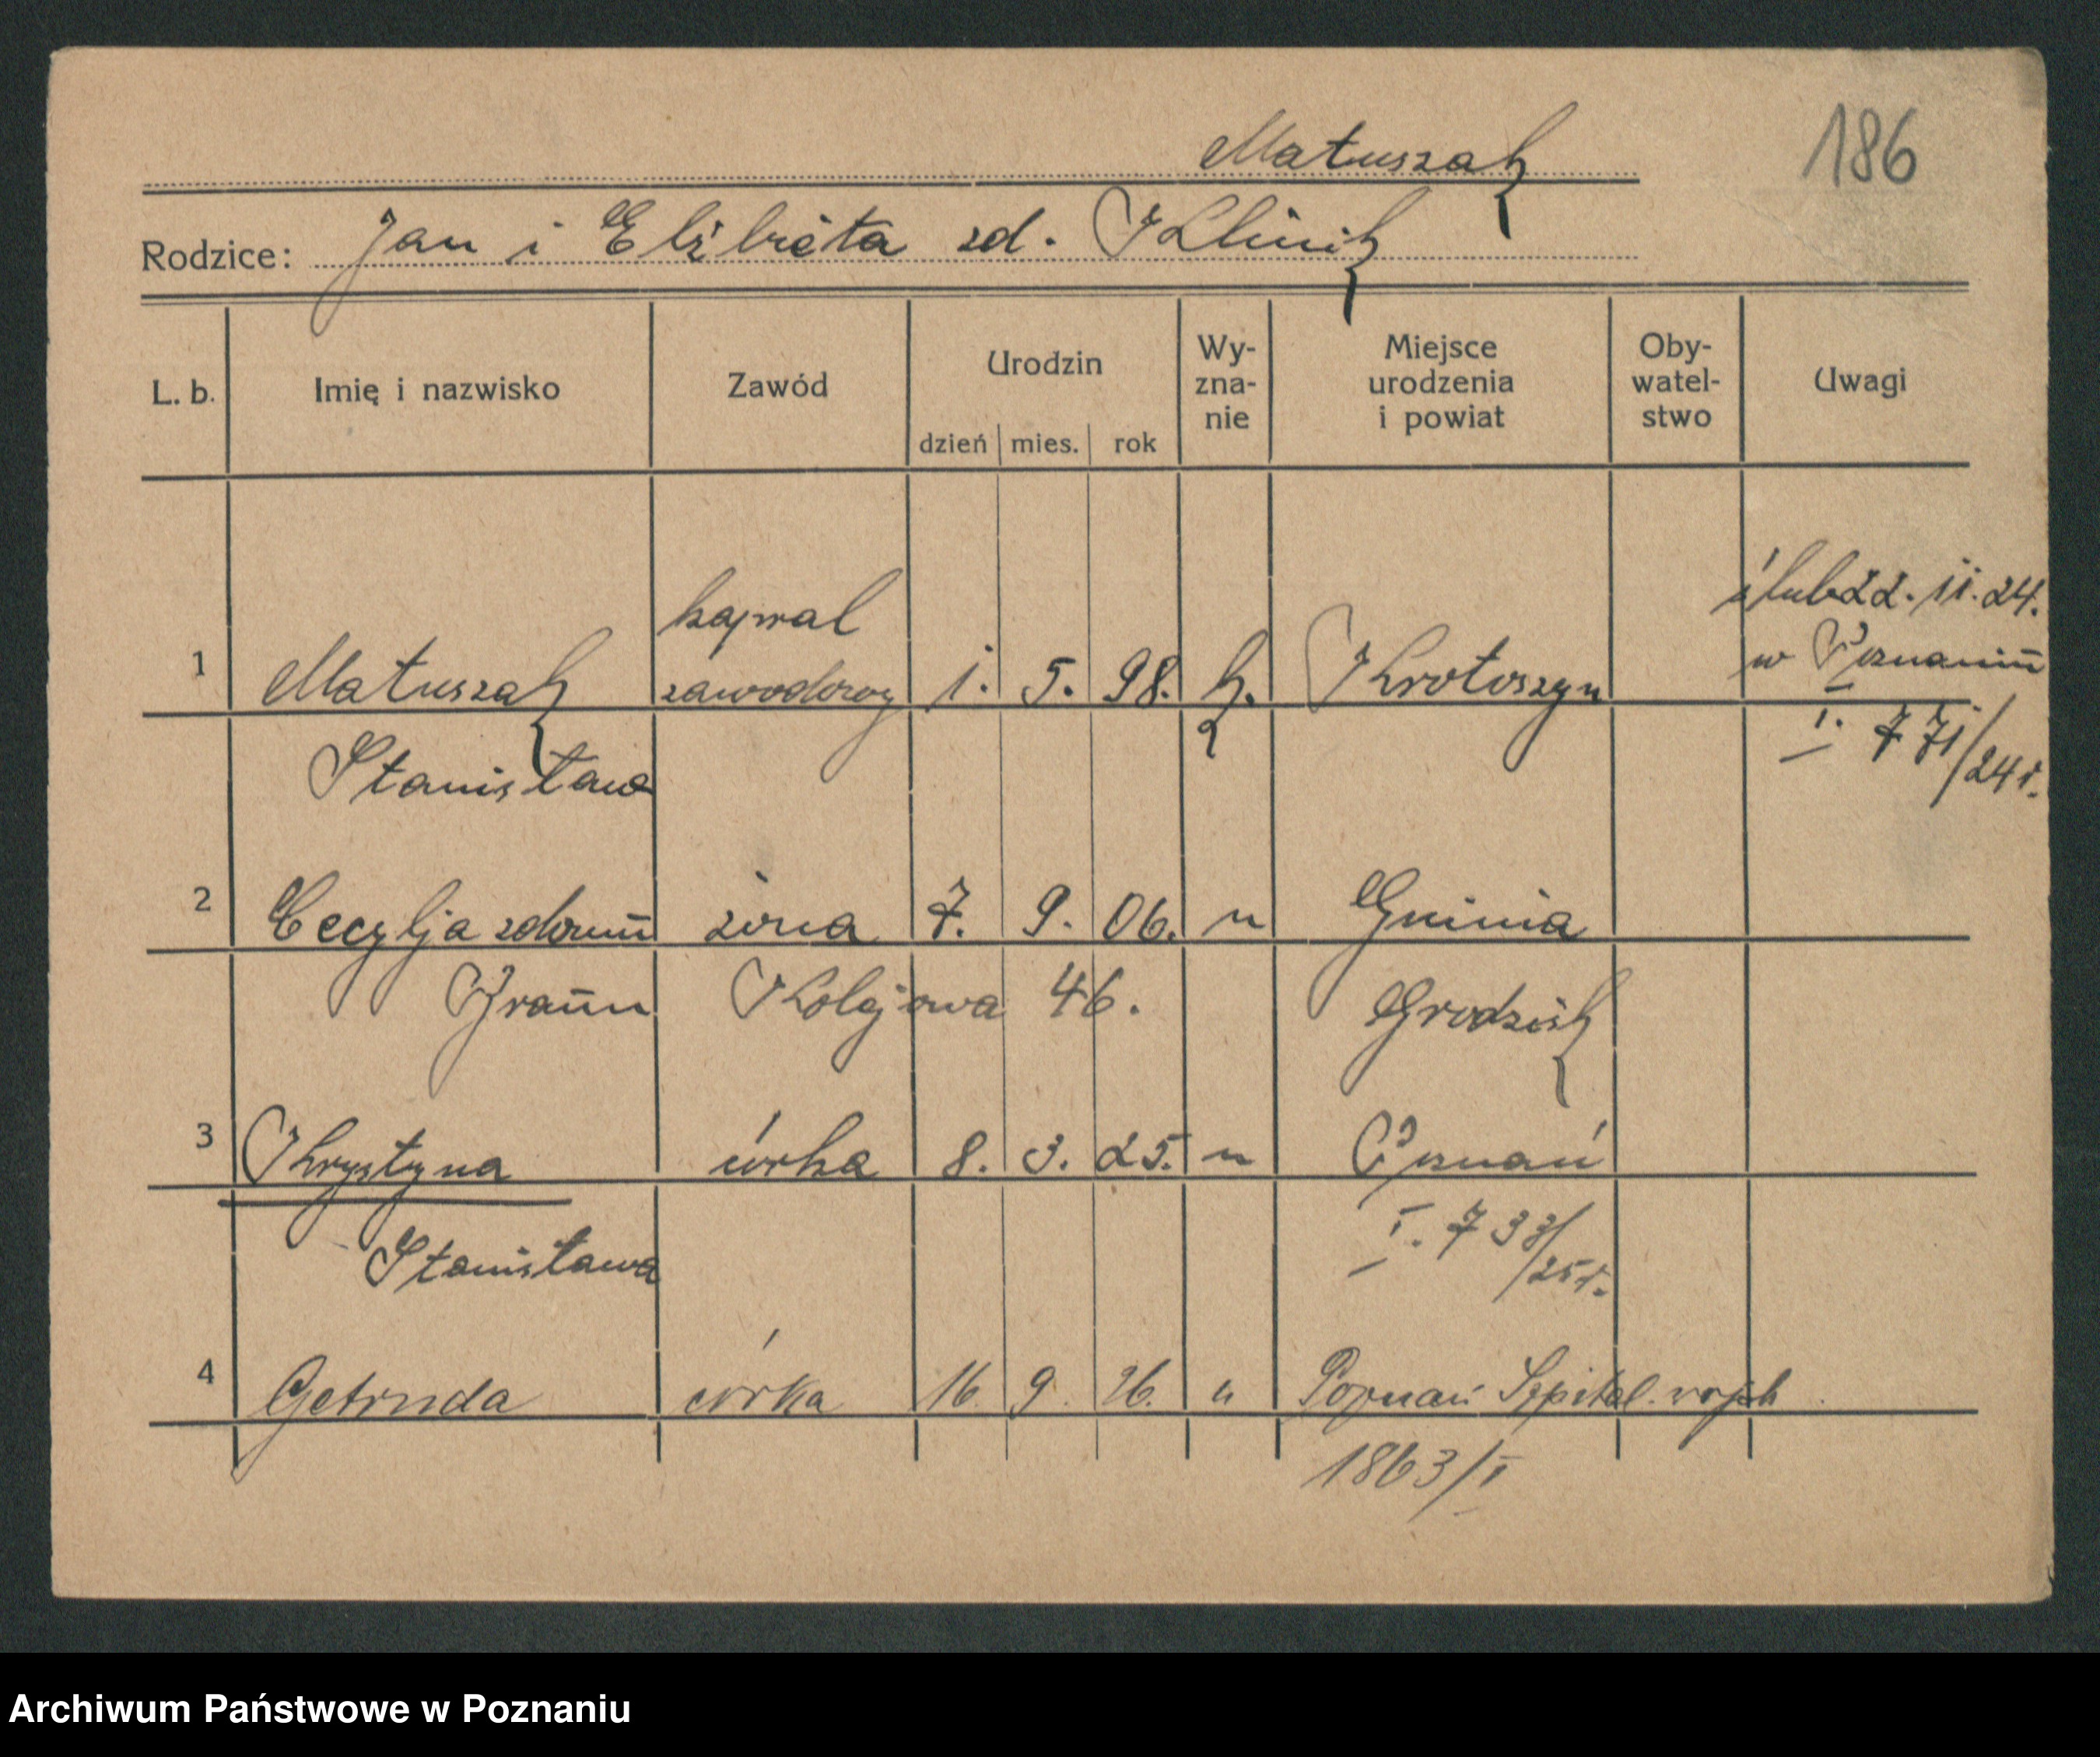 Matuszak
186
Rodzice: Jan i Elżbieta zd. Klinik
L. b. Imię i nazwisko Zawód Urodzin Wy-zna-nie Miejsce urodzenia i powiat Oby-watel-stwo Uwagi
dzień mies. rok
kapral ślub 22. 11. 24.
1 Matuszak zawodowy 1. 5. 98. k. Krotoszyn w Poznaniu
Stanisław I. 771/24 r.
2 Cecylja zdomu żona 7. 9. 06. " Gninia
Braun Kolejowa 46. Grodzisk
3 Krystyna córka 8. 3. 25. " Poznań
Stanisława I. 733/25 r.
4 Getruda córka 16. 9. 26. " Poznań Szpital. wojsk.
1863/I
Archiwum Państwowe w Poznaniu